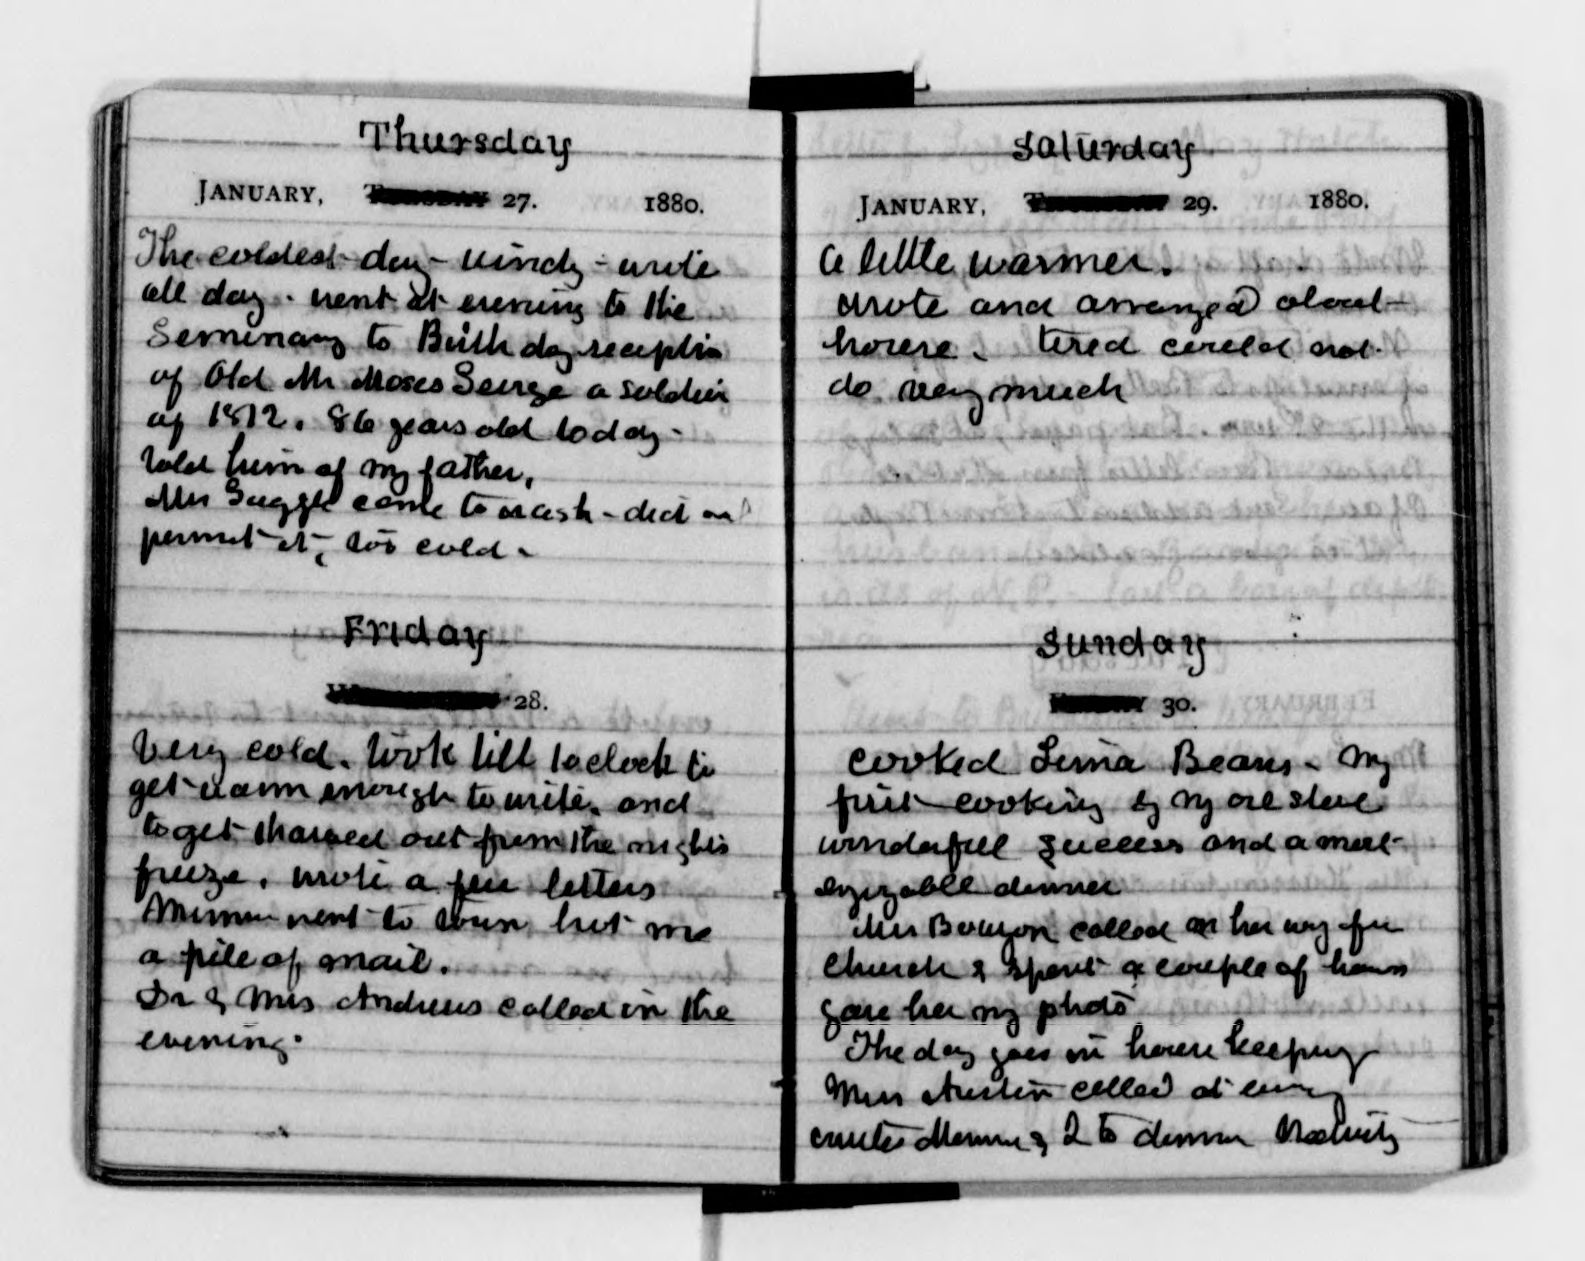 Thursday
JANUARY, 27. 1880.
The coldest day - windy - wrote
all day. went at evening to the
Seminary to Birth day reception
of Old Mr Moses a soldier
of 1812. 86 years old today -
told him of my father.
Mrs came to wash - did not
permit it, too cold -
Friday
28.
Very cold. took till 10 oclock to
get warm enough to write. and
to get thawed out from the nights
freeze. wrote a few letters
Minnie went to town but no
a pile of mail.
Dr & Mrs Andrews called in the
evening.
Saturday
JANUARY, 29. 1880.
A little warmer.
wrote and arranged about
house. tired could not
do very much
Sunday
30.
cooked Lima Beans - my
first cooking by my oil stove
wonderful success and a most
enjoyable dinner
Mrs called on her way fr
church & spent a couple of hours
gave her my photo
The day goes in house keeping
Mrs Austin called at evening
invites Minnie & I to dinner